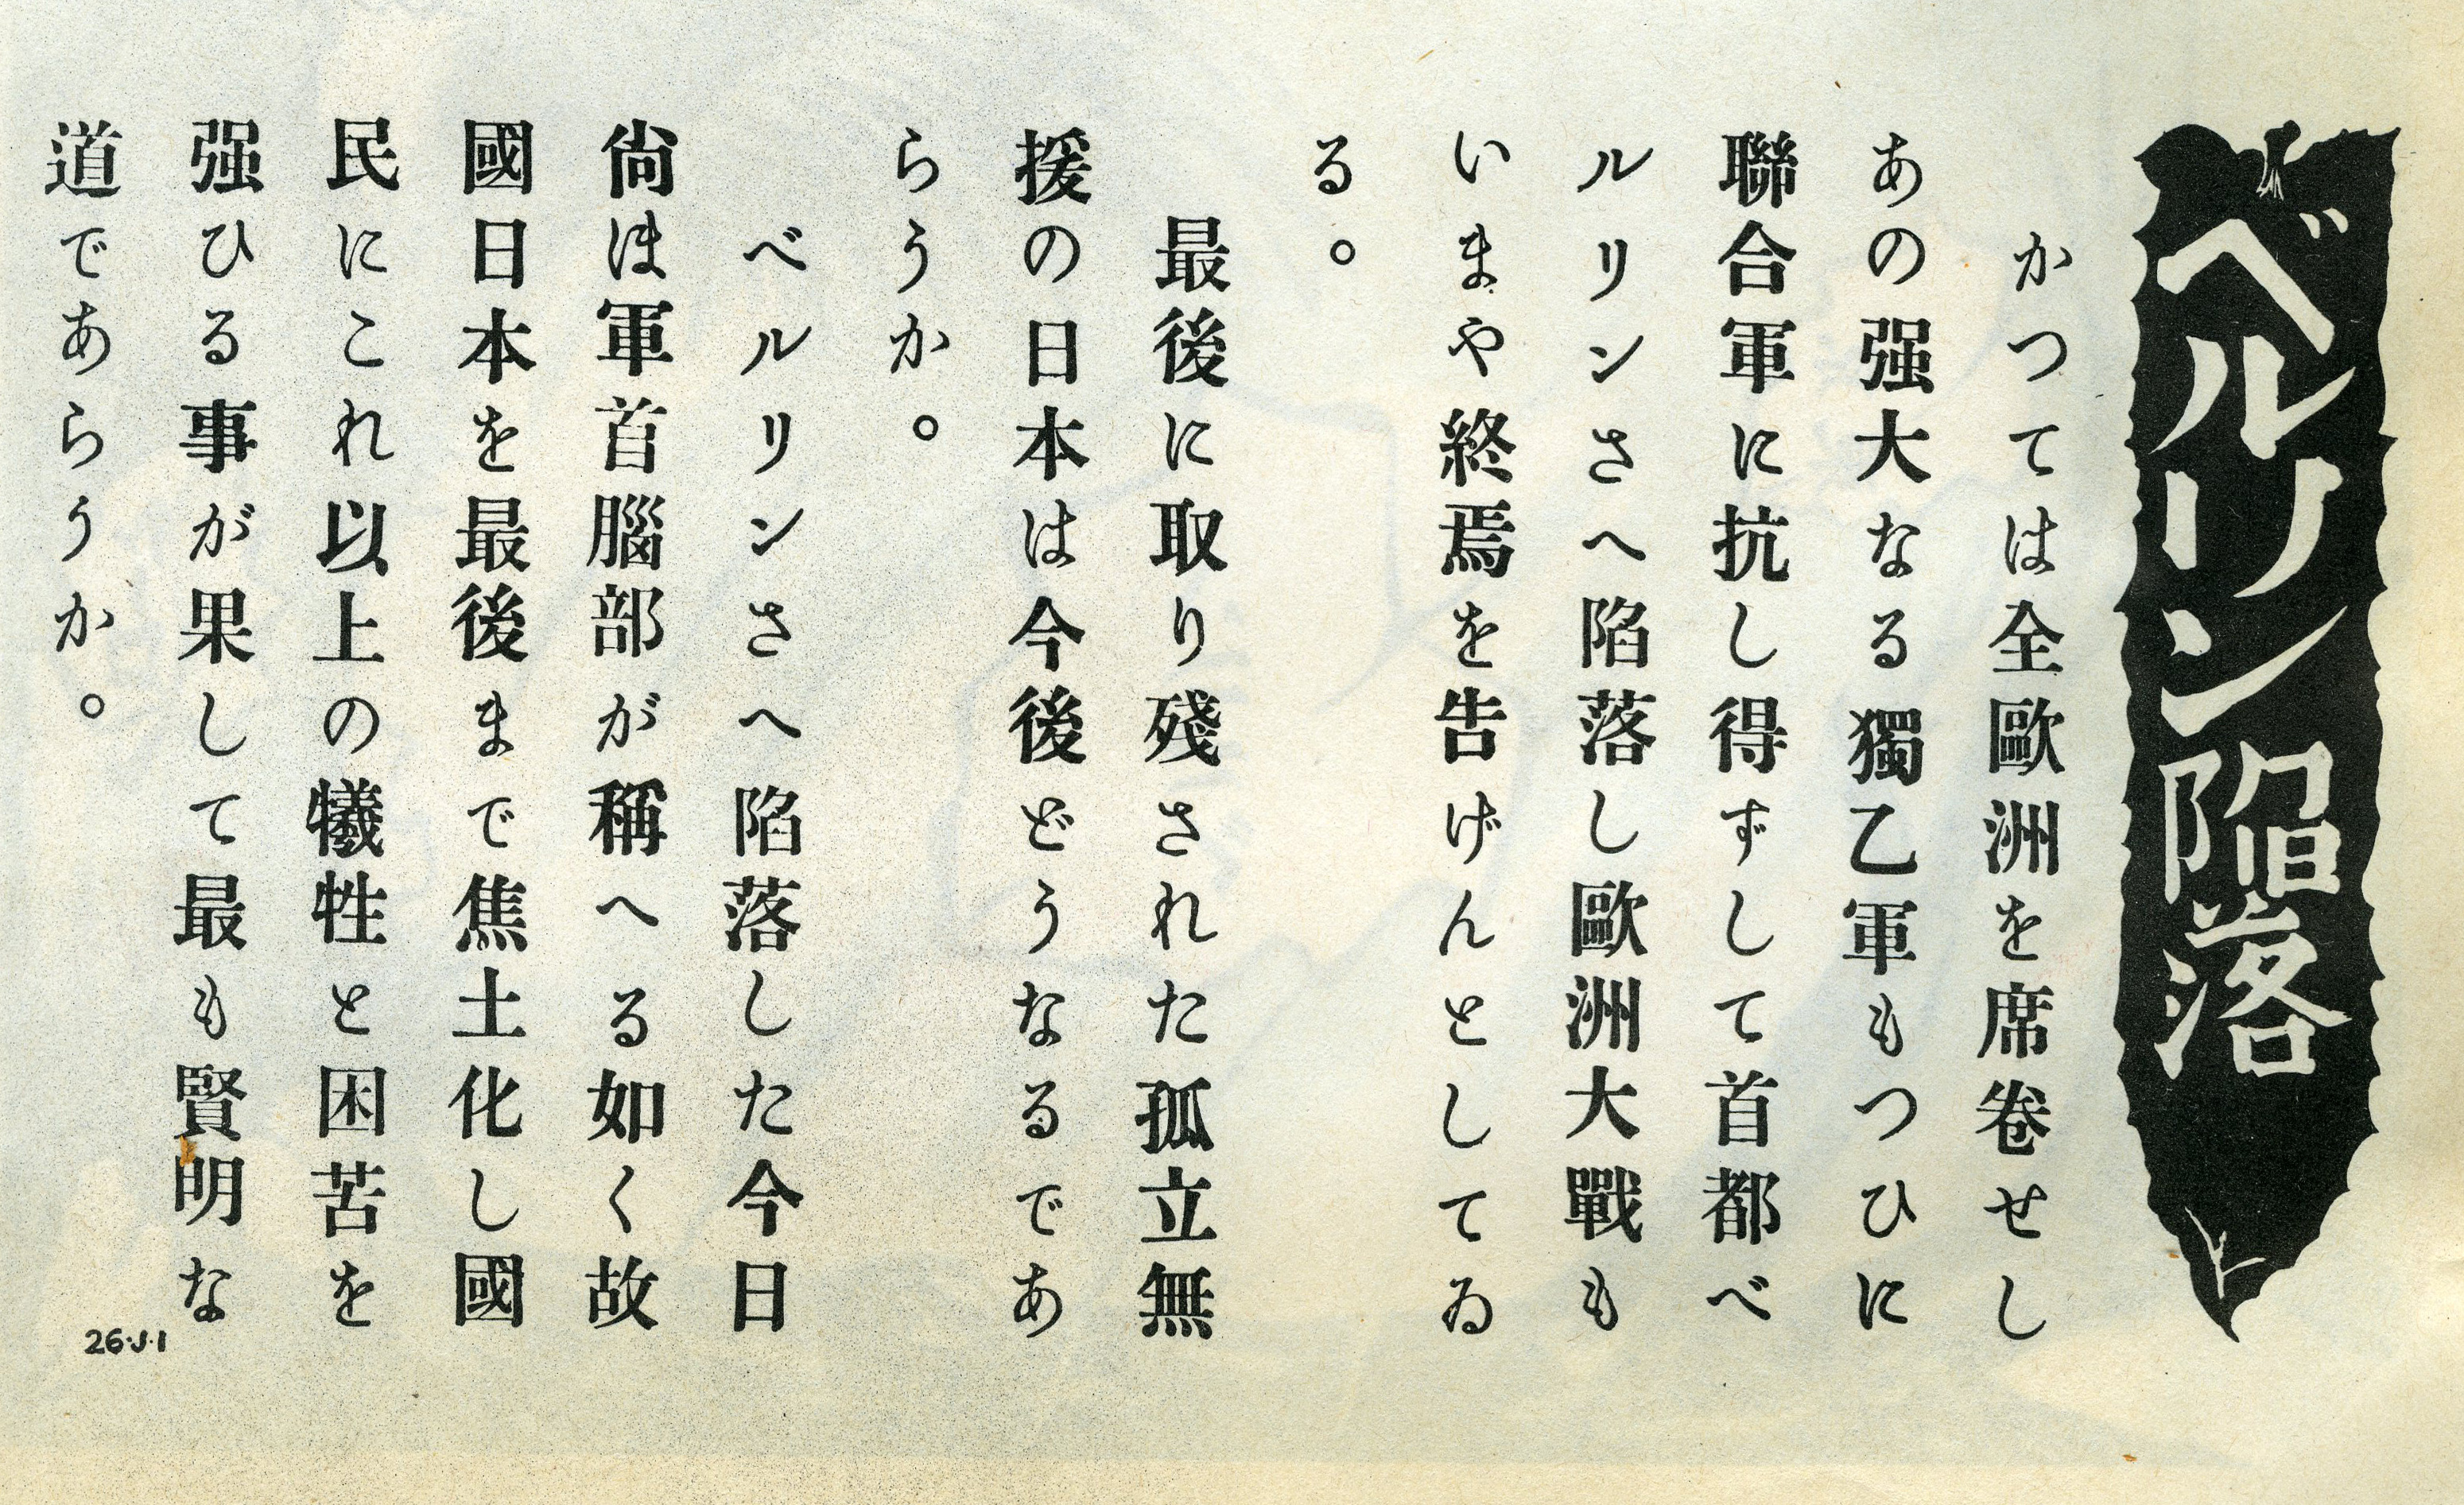 ベルリン陥落
かつては全歐洲を席卷せし
あの强大なる獨乙軍もつひに
聯合軍に抗し得ずして首都ベ
ルリンさへ陥落し歐洲大戰も
いまや終焉を告げんとしてゐ
る。
最後に取り殘された孤立無
援の日本は今後どうなるであ
らうか。
ベルリンさへ陥落した今日
尙ほ軍首腦部が稱へる如く故
國日本を最後まで焦土化し國
民にこれ以上の犠牲と困苦を
强ひる事が果して最も賢明な
道であらうか。
26·J·1